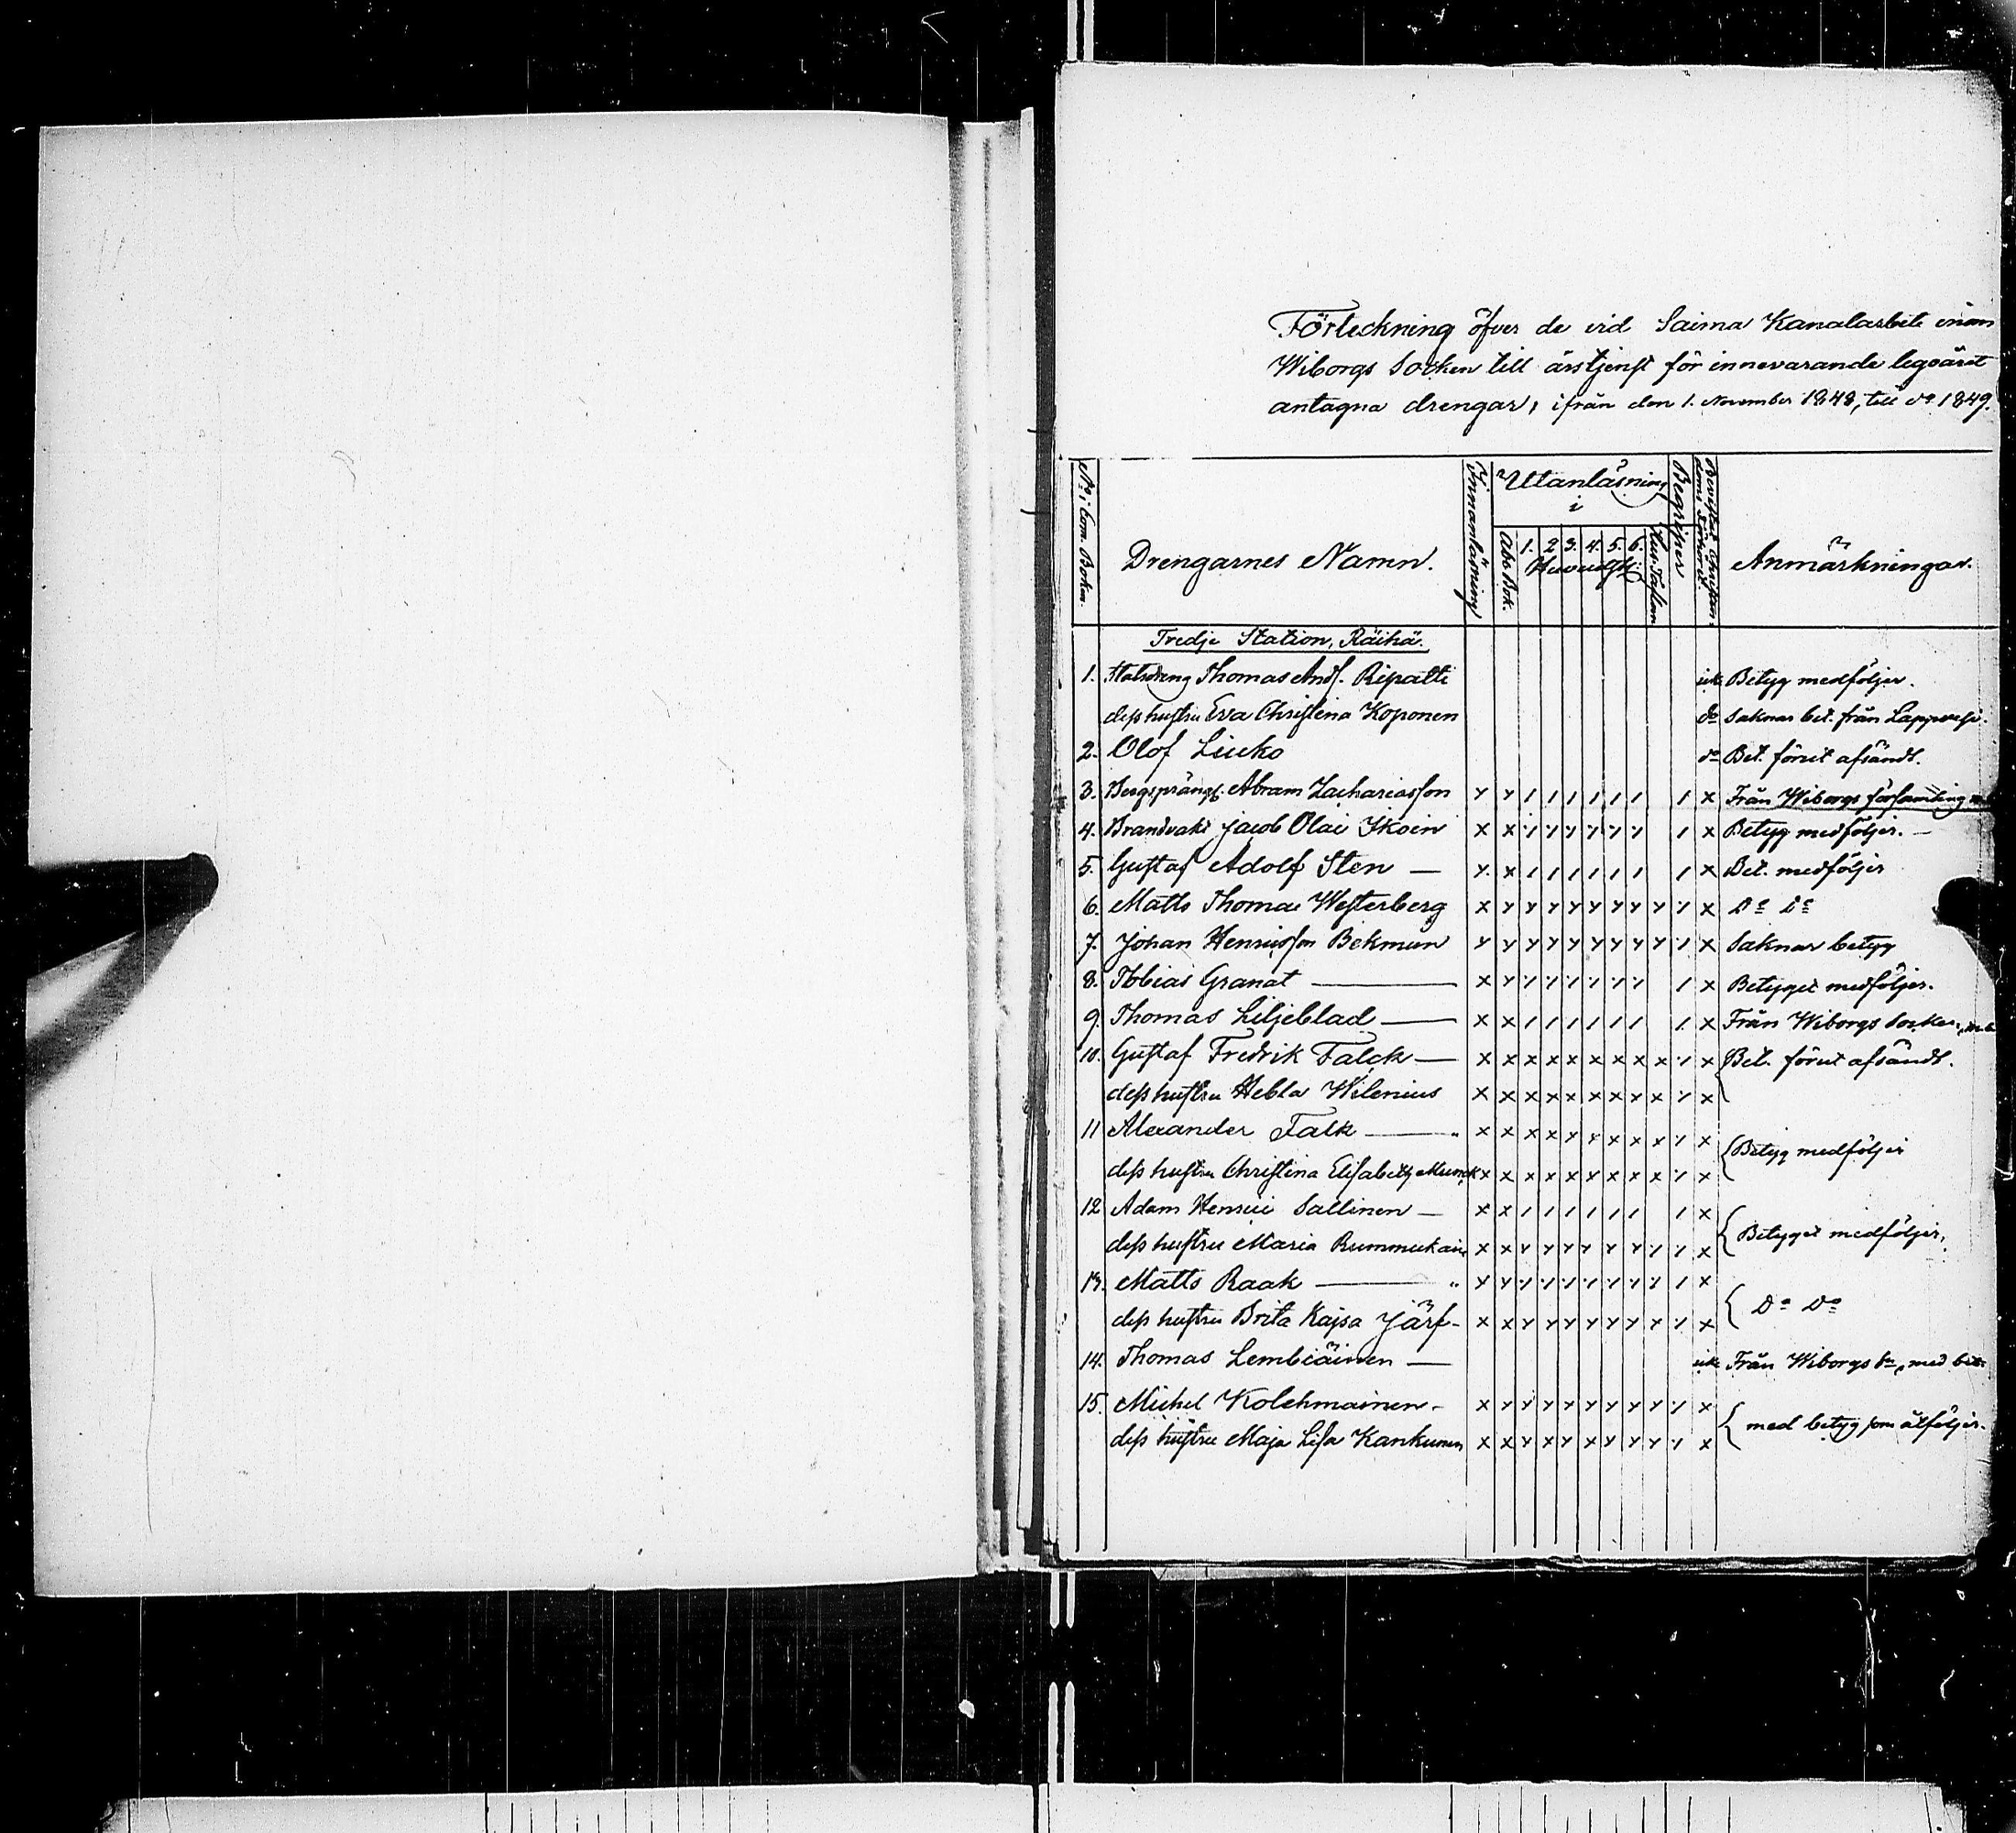 Förteckning öfver de vid Saima Kanalarbete inom
Wiborgs Socken till årstjenst för innevarande legoåret
antagna drengar, ifrån den 1. November 1848, till do 1849.
No i Com. Boken.
Drengarnes Namn.
Innanläsning
Utanläsning
i
Abc Bok.
1. 2 3. 4. 5. 6.
Huvudst:
Hus Taflan
Begreper
Bevistat Christen-
doms Förhöret
Anmärkningar.
Tredje Station, Räihä.
1. Statsdräng Thomas And. Ripatti icke Betyg medföljer.
dess hustru Eva Christina Koponen do Saknar bet. från Lappvesi.
2. Olof Liuko do Bet. förut afsändt.
3. Bergspräng. Abram Zachariasson x x / / / / / / / x Från Wiborgs församling
4. Brandvakt Jacob Olai Ikoin x x / / / / / / / x Betyg medföljer. —
5. Gustaf Adolf Sten — x x / / / / / / / x Bet. medföljer
6. Matts Thomae Westerberg x x x x x x x x x / x Do Do
7. Johan Henricsson Bekman x x x x x x x x x / x Saknar betyg
8. Tobias Granat — x x / / / / / / / x Betyget medföljer.
9. Thomas Liljeblad — x x / / / / / / / x Från Wiborgs Socken,
10. Gustaf Fredrik Falck — x x x x x x x x x / x Bet. förut afsändt.
dess hustru Hebla Wilenius x x x x x x x x x / x
11 Alexander Falk — x x x x x x x x x / x
Betyg medföljer
dess hustru Christina Elisabeth Munck x x x x x x x x x / x
12 Adam Henrici Sallinen — x x / / / / / / / x
Betyget medföljer,
dess hustru Maria Rummukain x x x x x x x x / / x
13. Matts Raak — x x / / / / / / / / x
Do Do
dess hustru Brita Kajsa Järf - x x x x x x x x x / x
14. Thomas Lembiäinen — icke Från Wiborgs sn, med bet.
15. Michel Kolehmainen - x x x x x x x x x / x
med betyg som åtföljer.
dess hustru Maja Lisa Kankunen x x x x x x x x x / x